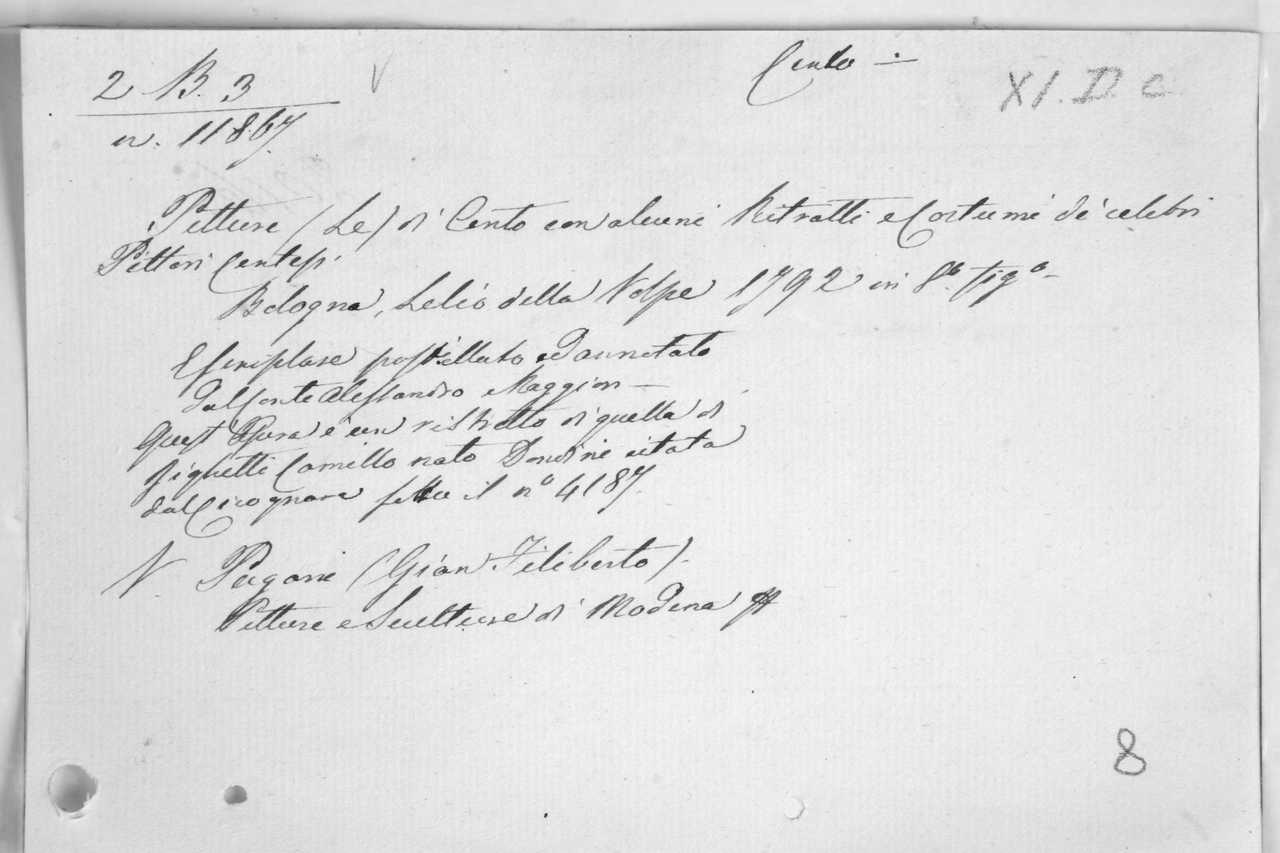 2 B. 3
n. 11867.
Cento —
XI. D. c.
Pitture (Le) di Cento con alcuni Ritratti e Costumi de' celebri
Pittori Centesi.
Bologna, Lelio della Volpe 1792 in 8.º fig.º
Esemplare postillato ed annotato
dal Conte Alessandro Maggiori —
Quest'Opera è un ristretto di quella di
Righetti Camillo nato Dondini citata
dal Cicognara sotto il nº 4187.
V Pagani (Gian Filiberto).
Pitture e Sculture di Modena
8